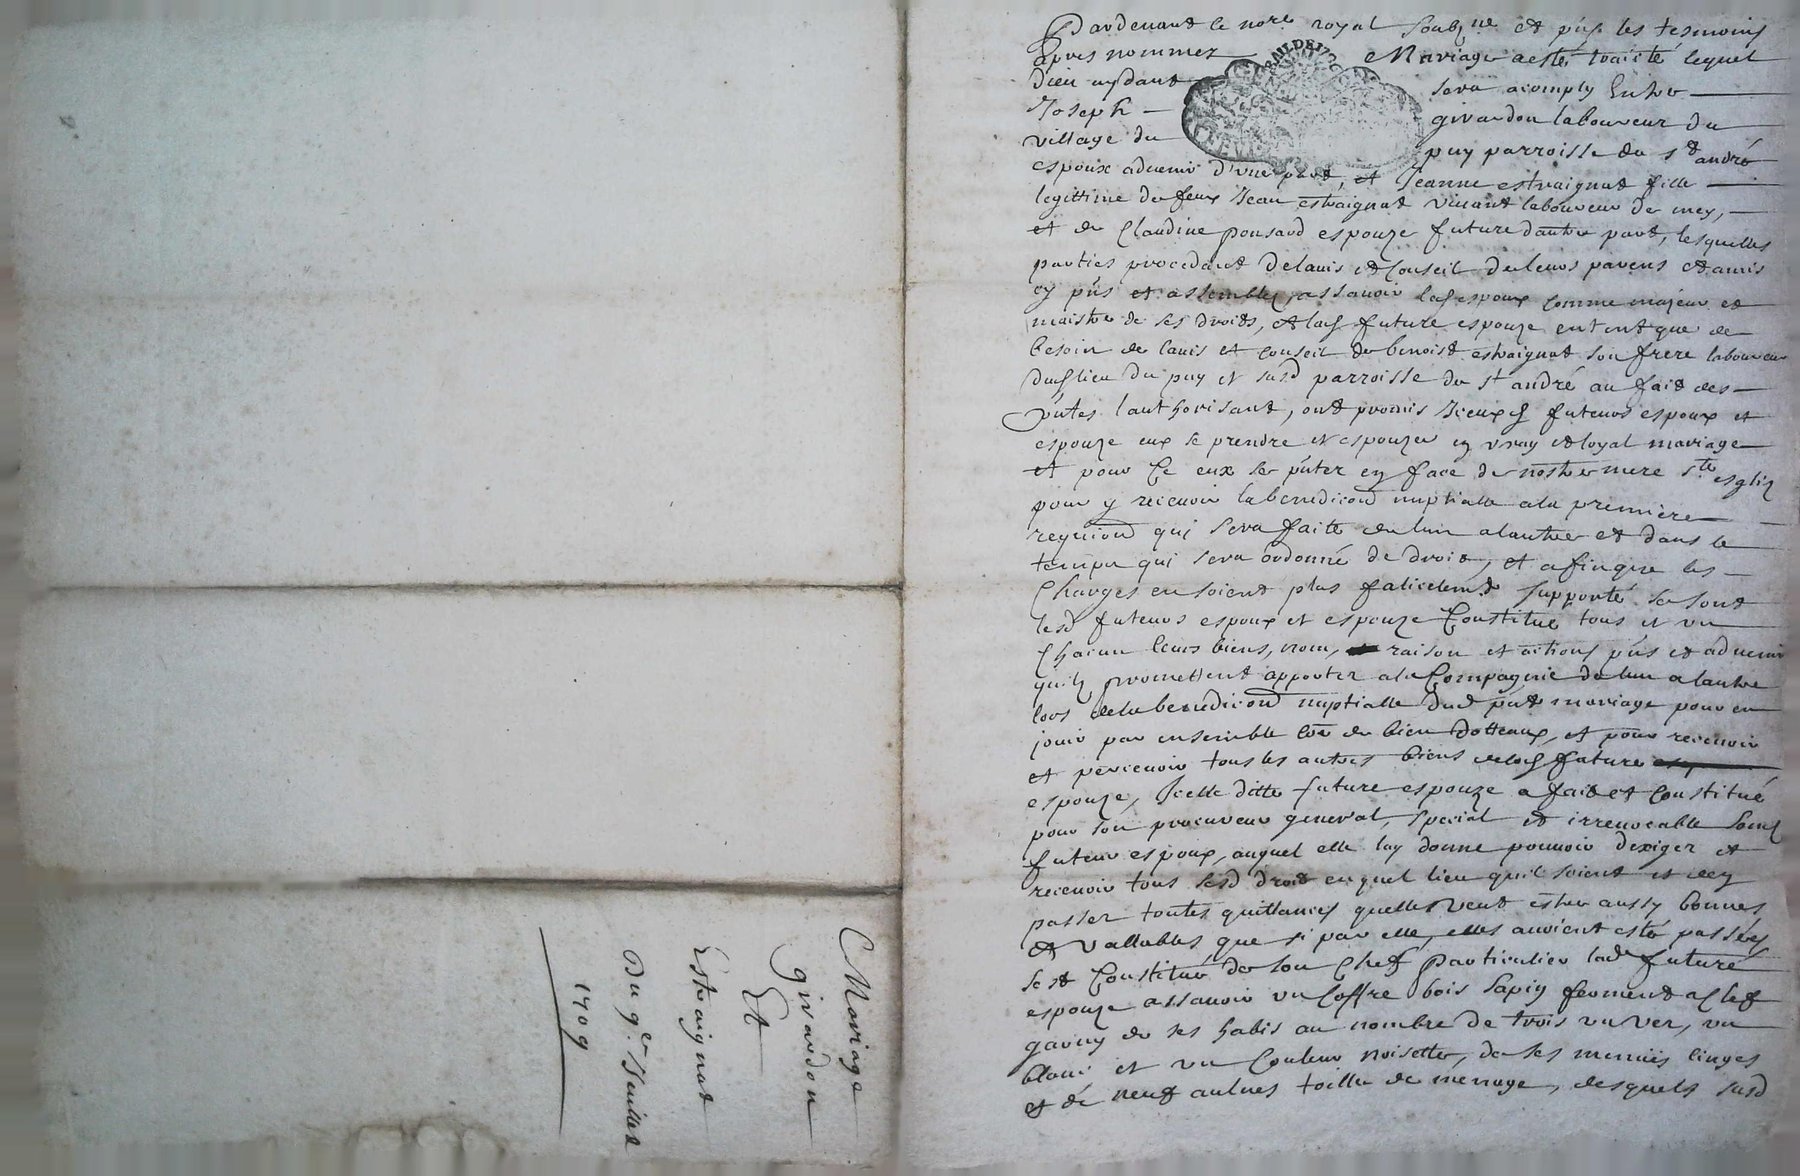 Pardevant le nore royal soubzne et pns les tesmoins
apres nommez Mariage a esté traicté lequel
dieu aydant sera acomply Entre
Joseph girardon laboureur du
village du puy parroisse de st andré
espoux advenir d'une part, et Jeanne estraignat fille
legittime de feux Jean estraignat vivant laboureur de mey,
et de Claudine ponsard espouze future dautre part, lesquelles
parties procedant de lavis et Conseil de leurs parens et amis
cy pns et assemblez, assavoir led espoux comme majeur et
maistre de ses droits, et lad future espouze en tant que de
besoin de lavis et conseil de benoist estraignat son frere laboureur
dud lieu du puy et susd parroisse de st andré au fait des
pntes lauthorisant, ont promis Iceux futeurs espoux et
espouze eux se prendre et espouzer en vray et loyal mariage
et pour Ce eux se pnter en face de nostre mere ste esglize
pour y recevoir la benediction nuptialle a la premiere
requiond qui sera faite de lun a lautre et dans le
temps qui sera ordonné de droit, et afin que les
Charges en soient plus facilemt supporté se sont
lesd futeurs espoux et espouze Constitué tous et un
Chacun leurs biens, nom, raison et actions pns et advenir
quilz promettent apporter a la Compagnie de lun a lautre
lors de la benediction nuptialle dud pnt mariage pour en
jouir par ensemble de bien dotteaux, et pour recevoir
et percevoir tous les autres biens de lad future
espouze, Icelle ditte future espouze a fait et Constitué
pour son procureur general, special et irrevocable sond
futeur espoux, auquel elle luy donne pouvoir dexiger et
recevoir tous sesd droit en quel lieu quil soient et den
passer toutes quittances quelle veut estre aussy bonnes
et vallables, que si par elle, elles avoient esté passées
sest Constitué de son Chef Particulier lad future
espouze assavoir un Coffre bois sapin ferment a Clef
garny de ses habis au nombre de trois un ver, un
blanc et un Couleur noisette, de ses menus linges
et de neuf aulnes toille de ménage, desquels susd
Mariage
girardon
Et
Estraignat
Du 9e Juillet
1709